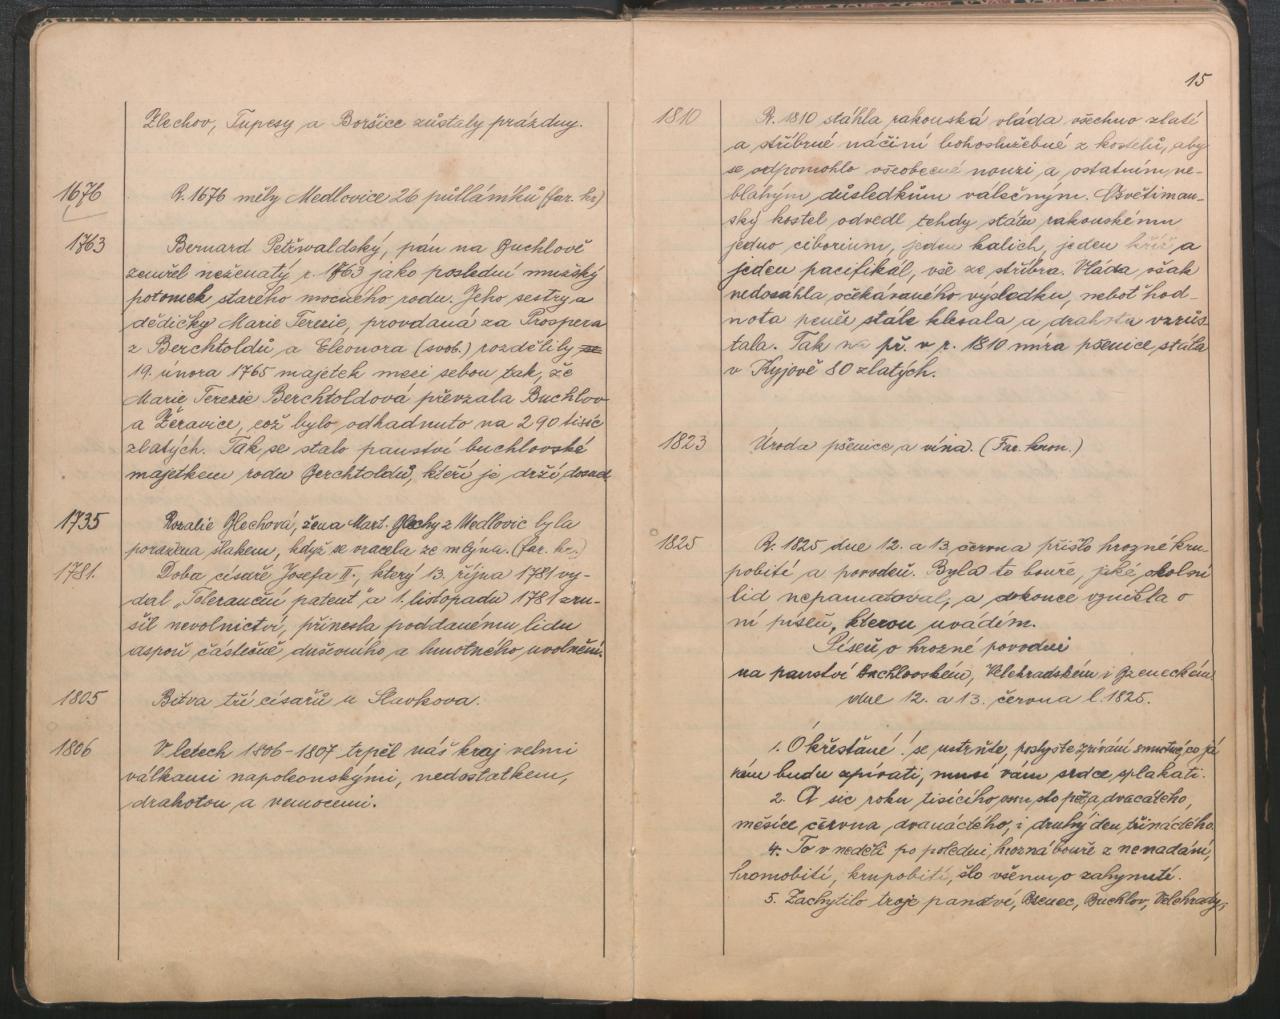 Zlechov, Tupesy a Boršice zůstaly prázdny.
1676 R. 1676 měly Medlovice 26 půlláníků (far. kr.)
1763 Bernard Petřvaldský, pán na Buchlově
zemřel neženatý r. 1763 jako poslední mužský
potomek starého mocného rodu. Jeho sestry a
dědičky Marie Terezie, provdaná za Prospera
z Berchtoldů a Eleonora (svob.) rozdělily se
19. února 1765 majetek mezi sebou tak, že
Marie Terezie Berchtoldová převzala Buchlov
a Žeravice, což bylo odhadnuto na 290 tisíc
zlatých. Tak se stalo panství buchlovské
majetkem rodu Berchtoldů, kteří je drží dosud
1735 Rozalie Blechová, žena Mart. Blechy z Medlovic byla
poražena šlakem, když se vracela ze mlýna. (far. kr.)
1781. Doba císaře Josefa II., který 13. října 1781 vy-
dal „Toleranční patent" a 1. listopadu 1781 zru-
šil nevolnictví, přinesla poddanému lidu
aspoň částečně duševního a hmotného uvolnění.
1805 Bitva tří císařů u Slavkova.
1806 V letech 1806-1807 trpěl náš kraj velmi
válkami napoleonskými, nedostatkem,
drahotou a nemocemi.
15
1810 R. 1810 stáhla rakouská vláda všechno zlaté
a stříbrné náčiní bohoslužebné z kostelů, aby
se odpomohlo všeobecné nouzi a ostatním ne-
blahým důsledkům válečným. Osvětiman-
ský kostel odvedl tehdy státu rakouskému
jedno ciborium, jeden kalich, jeden kříž a
jeden pacifikál, vše ze stříbra. Vláda však
nedosáhla očekávaného výsledku, neboť hod-
nota peněz stále klesala a drahota vzrůs-
tala. Tak na př. v r. 1810 míra pšenice stála
v Kyjově 80 zlatých.
1823 Úroda pšenice a vína. (Far. kron.)
1825 R. 1825 dne 12. a 13. června přišlo hrozné kru-
pobití a povodeň. Byla to bouře, jaké okolní
lid nepamatoval, a dokonce vznikla o
ní píseň, kterou uvádím.
Píseň o hrozné povodni
na panství Buchlovském, Velehradském i Bzeneckém
dne 12. a 13. června l. 1825.
1. Ó křesťané! se ustrňte, poslyšte zpívání smutné, co já
vám budu zpívati, musí vám srdce splakati.
2. A sic roku tisícího osmsto pěta dvacátého,
měsíce června dvanáctého, i druhý den třináctého.
4. To v neděli po poledni, hrozná bouře z nenadání,
hromobití, krupobití, šlo všemu o zahynutí.
5. Zachytilo troje panství, Bzenec, Buchlov, Velehrady,